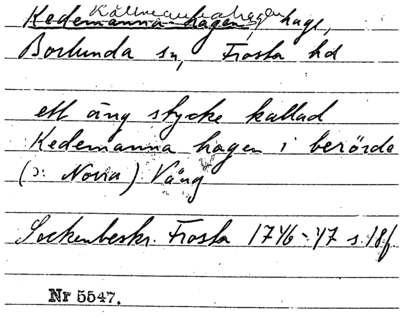 Källmannahagen
Kedemanna hagen, hage,
Borlunda sn, Frosta hd
ett äng stycke kallad
Kedemanna hagen i berörde
(ɔ: Norra) Väng
Sockenbeskr. Frosta 1746-47 s. 18f
Nr 5547.